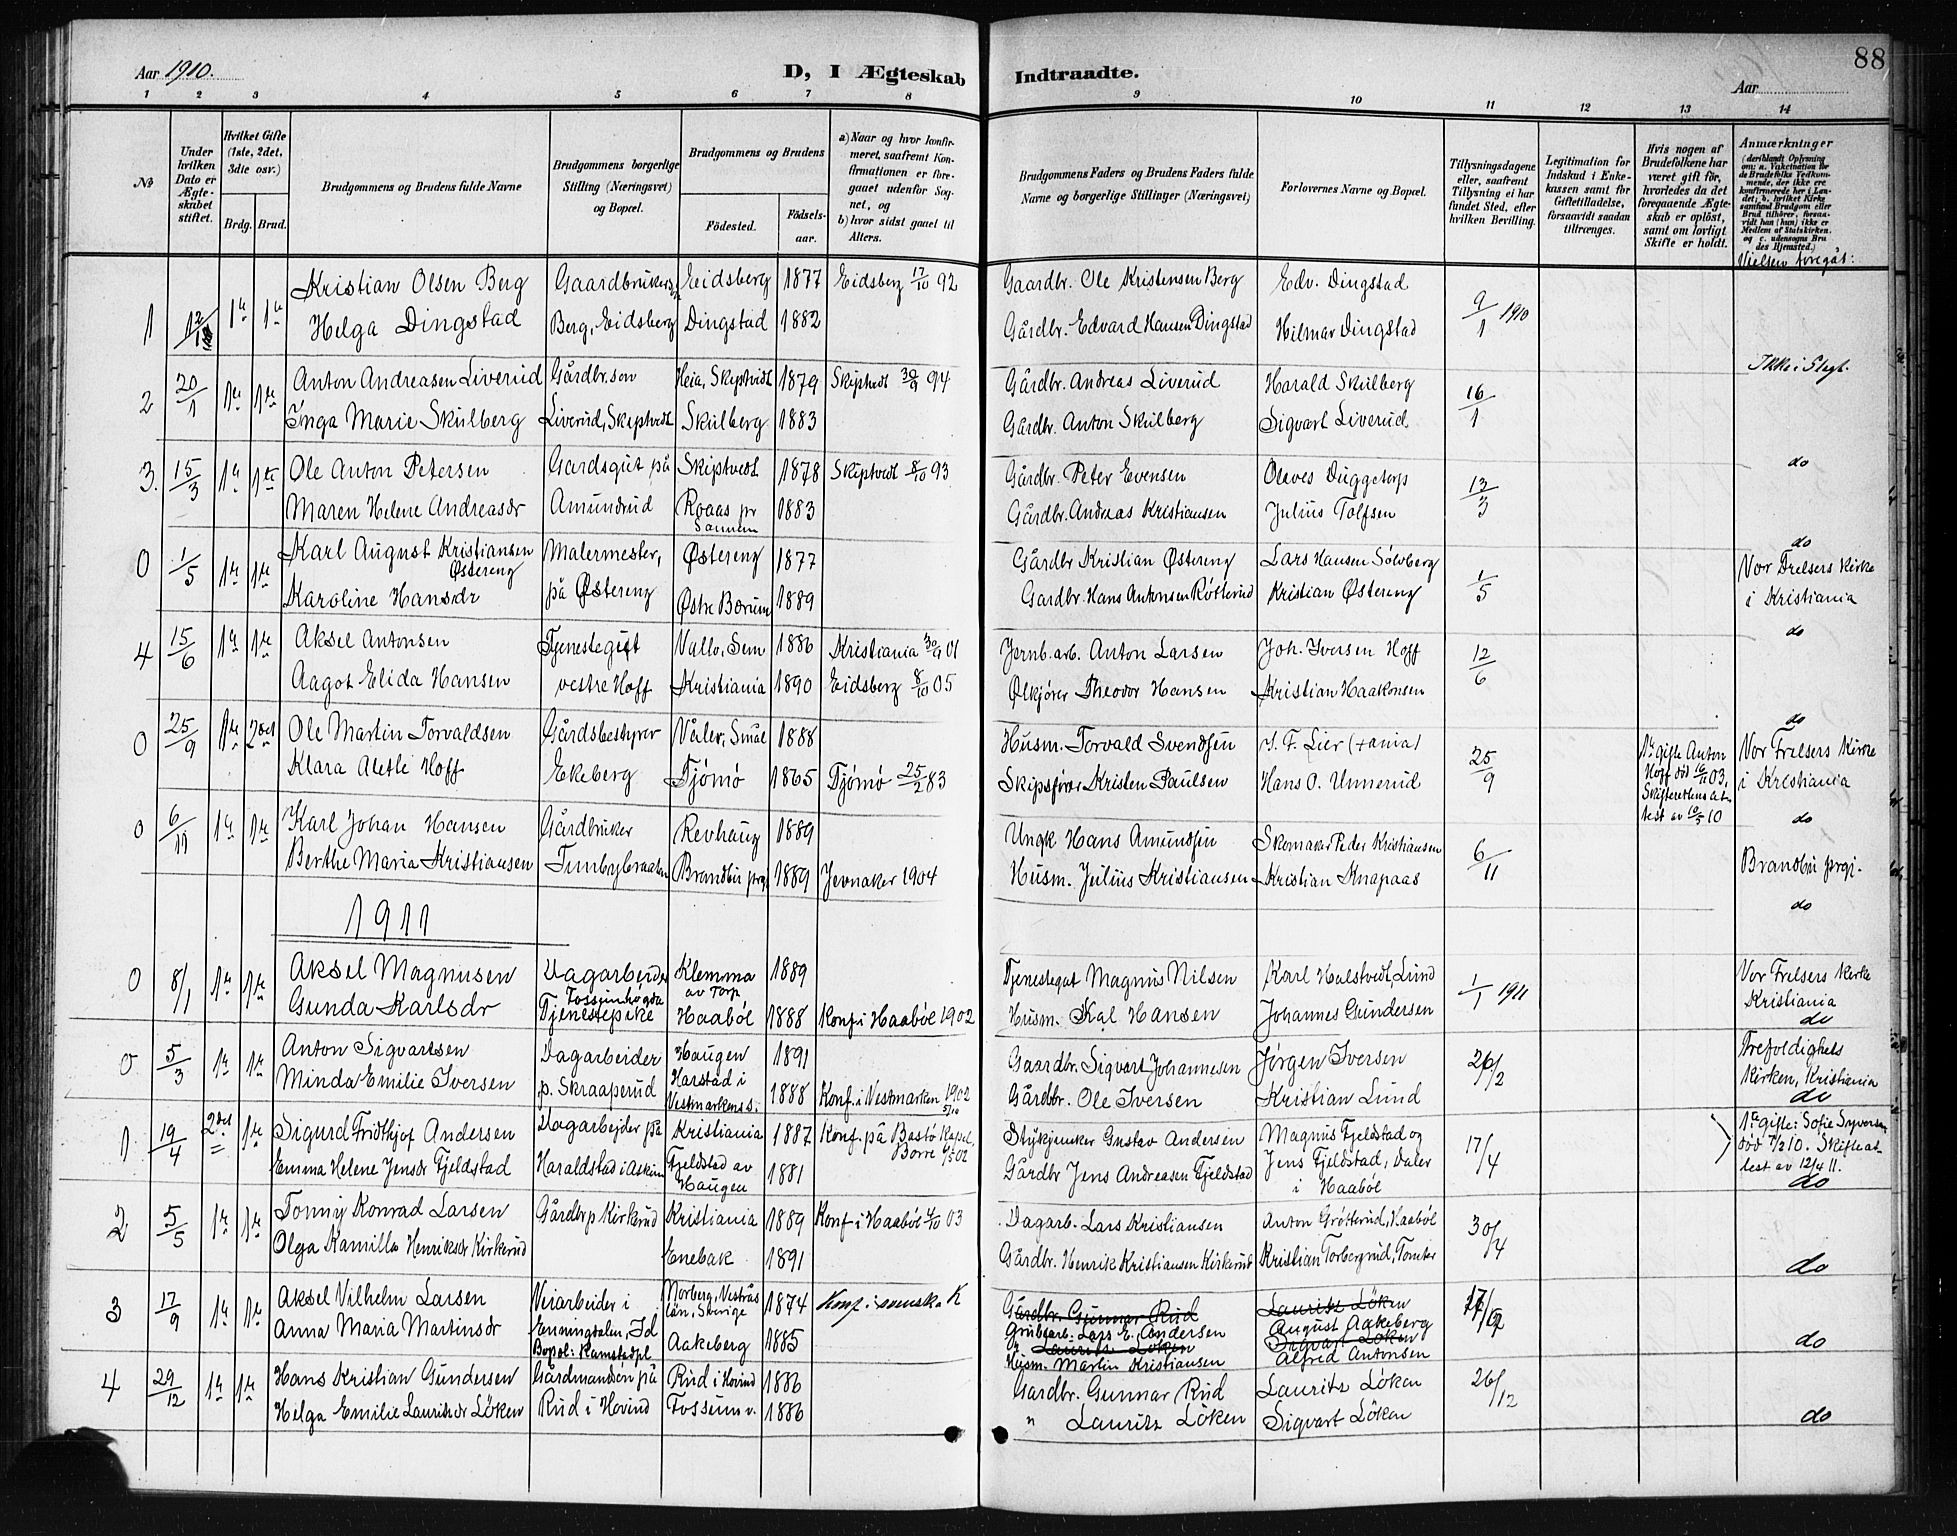 88
Aar 1910.
D, I Ægteskab Indtraadte.
Aar
1 2 3 4 5 6 7 8 9 10 11 12 13 14
No
Under hvilken Dato er Ægteskabet stiftet.
Hvilket Gifte (1ste, 2det, 3die osv.)
Brdg. Brud.
Brudgommens og Brudens fulde Navne
Brudgommens borgerlige Stilling (Næringsvei) og Bopæl.
Brudgommens og Brudens
Fødested.
Fødselsaar.
a) Naar og hvor konfirmeret, saafremt Konfirmationen er foregaaet udenfor Sognet, og
b) hvor sidst gaaet til Alters.
Brudgommens Faders og Brudens Faders fulde Navne og borgerlige Stillinger (Næringsvei)
Forlovernes Navne og Bopæl.
Tillysningsdagene eller, saafremt Tillysning ei har fundet Sted, efter hvilken Bevilling.
Legitimation for Indskud i Enkekassen samt for Giftetilladelse, forsaavidt saadan tiltrænges.
Hvis nogen af Brudefolkene har været gift før, hvorledes da det foregaaende Ægteskab er opløst, samt om lovligt Skifte er holdt.
Anmærkninger
(deriblandt Oplysning om: a. Vakcination for de Brudefolks Vedkommende, der ikke ere konfirmerede her i Landet; b. hvilket Kirkesamfund Brudgom eller Brud tilhører, forsaavidt han (hun) ikke er Medlem af Statskirken, og c. udensogns Brudes Hjemsted.)
Vielsen foregåt:
1 12/1 1ste 1ste Kristian Olsen Berg Gaardbruker Eidsberg 1877 Eidsberg 17/10 92 Gaardbr. Ole Kristensen Berg Edv. Dingstad 9/1 1910
Helga Dingstad Berg, Eidsberg Dingstad 1882 Gårdbr. Edvard Hansen Dingstad Hilmar Dingstad
Ikke i Slegt.
2 20/1 1ste 1ste Anton Andreasen Liverud Gårdbr.søn Heia, Skiptvedt 1879 Skiptvedt 94 Gårdbr. Andreas Liverud Harald Skulberg 16/1
Inga Marie Skulberg Liverud, Skiptvedt Skulberg 1883 Gårdbr. Anton Skulberg Sigvart Liverud
do
3. 15/3 1ste 1ste Ole Anton Petersen Gardsgut på Skiptvedt 1878 Skiptvedt 8/10 93 Gårdbr. Peter Evensen Olaves Duggetorp 13/3
Maren Helene Andreasdr Amundrud Roaas pr Sannem 1883 Gårdbr. Andreas Kristiansen Julius Tolfsen
do
0 1/5 1ste 1ste Karl August Kristiansen Østereng Malermester, Østereng 1877 Gårdbr Kristian Østereng Lars Hansen Sølvberg 1/5 Vor Frelsers Kirke
Karoline Hansdr på Østereng Østre Bærum 1889 Gardbr. Hans Antonsen Røtterud Kristian Østereng i Kristiania
do
4 15/6 1ste 1ste Aksel Antonsen Tjenestegut Vallø, Sem 1886 Kristiania 01 Jernb.arb. Anton Larsen Joh. Iversen Hoff 12/6
Aagot Elida Hansen vestre Hoff Kristiania 1890 Eidsberg 8/10 05 Ølkjører Theodor Hansen Kristian Haakonsen
do
0 25/9 1ste 2det Ole Martin Torvaldsen Gårdsbestyrer Våler, Smål 1888 Husm. Torvald Svendsen S. F. Lier (+ania) 25/9 1ste gifte Anton Hoff død 16/11 03, Skifterettens attest av 10 Vor Frelsers Kirke
Klara Alette Hoff Ekeberg Tjømø 1865 Tjømø 25/2 83 Skipsfører Kristen Paulsen Hans O. Unnerud i Kristiania
do
0 6/11 1ste 1ste Karl Johan Hansen Gårdbruker Revhaug 1889 Ungk Hans Amundsen Skomaker Peder Kristiansen 6/11
Berthe Maria Kristiansen Brandbu prgj 1889 Jevnaker 1904 Husm. Julius Kristiansen Kristian Knapaas Brandbu prgj.
do
1911
0 8/1 1ste 1ste Aksel Magnusen Dagarbeider Klemma av Torp 1889 Tjenestegut Magnus Nilsen Karl Halstvedt, Lund 1/1 1911 Vor Frelsers Kirke
Gunda Karlsdr Tjenestepike Haabøl 1888 Konf i Haabøl 1902 Husm. Kal Hansen Johannes Gundersen Kristiania
do
0 5/3 1ste 1ste Anton Sigvartsen Dagarbeider Haugen 1891 Gaardbr. Sigvart Johannesen Jørgen Iversen 26/2 Trefoldighets
Minda Emilie Iversen p. Skraaperud Harstad i Vestmarkens s. 1888 Konf. i Vestmarken 1902 5/10 Gårdbr. Ole Iversen Kristian Lund Kirken, Kristiania
do
1 19/4 2det 1ste Sigurd Fridthjof Andersen Dagarbejder på Kristiania 1887 Konf. på Bastø Kapel, Borre 02 Stykjunker Gustav Andersen Magnus Fjeldstad og 17/4 1ste gifte: Sofie Syversen
Emma Helene Jensdr Fjeldstad Haraldstad i Askim Fjeldstad av Haugen 1881 Gårdbr Jens Andreasen Fjeldstad Jens Fjeldstad, Daler i Haabøl død 7/2 10. Skifteattest av 12/4 11.
do
2 5/5 1ste 1ste Tonny Konrad Larsen Gårdbr p Kirkerud Kristiania 1889 Konf. i Haabøl 4/10 03 Dagarb. Lars Kristiansen Anton Grøtterud, Haabøl 30/4
Olga Kamilla Henriksdr Kirkerud Enebak 1891 Gårdbr. Henrik Kristiansen Kirkerud Kristian Torbergrud, Tomter
do
3 17/9 1ste 1ste Aksel Vilhelm Larsen Veiarbeider i Norberg, Vestrås län, Sverige 1874 Konf i svenska K Gårdbr. Gunnar Rud Lauritz Løken
Grubearb: Lars E. Andersen August Aakeberg
Anna Maria Martinsdr Enningdalen, Id Bopæl: Kamstedpl Aakeberg 1885 Lauritz Løken Sigvart Løken
Husm. Martin Kristiansen Alfred Antonsen
do
4 29/12 1ste 1ste Hans Kristian Gundersen Gårdmandsøn på Rud i Hovind 1886 Gardbr. Gunnar Rud Lauritz Løken 26/12
Helga Emilie Lauritsdr Løken Rud i Hovind Fossum v. 1886 " Lauritz Løken Sigvart Løken
do